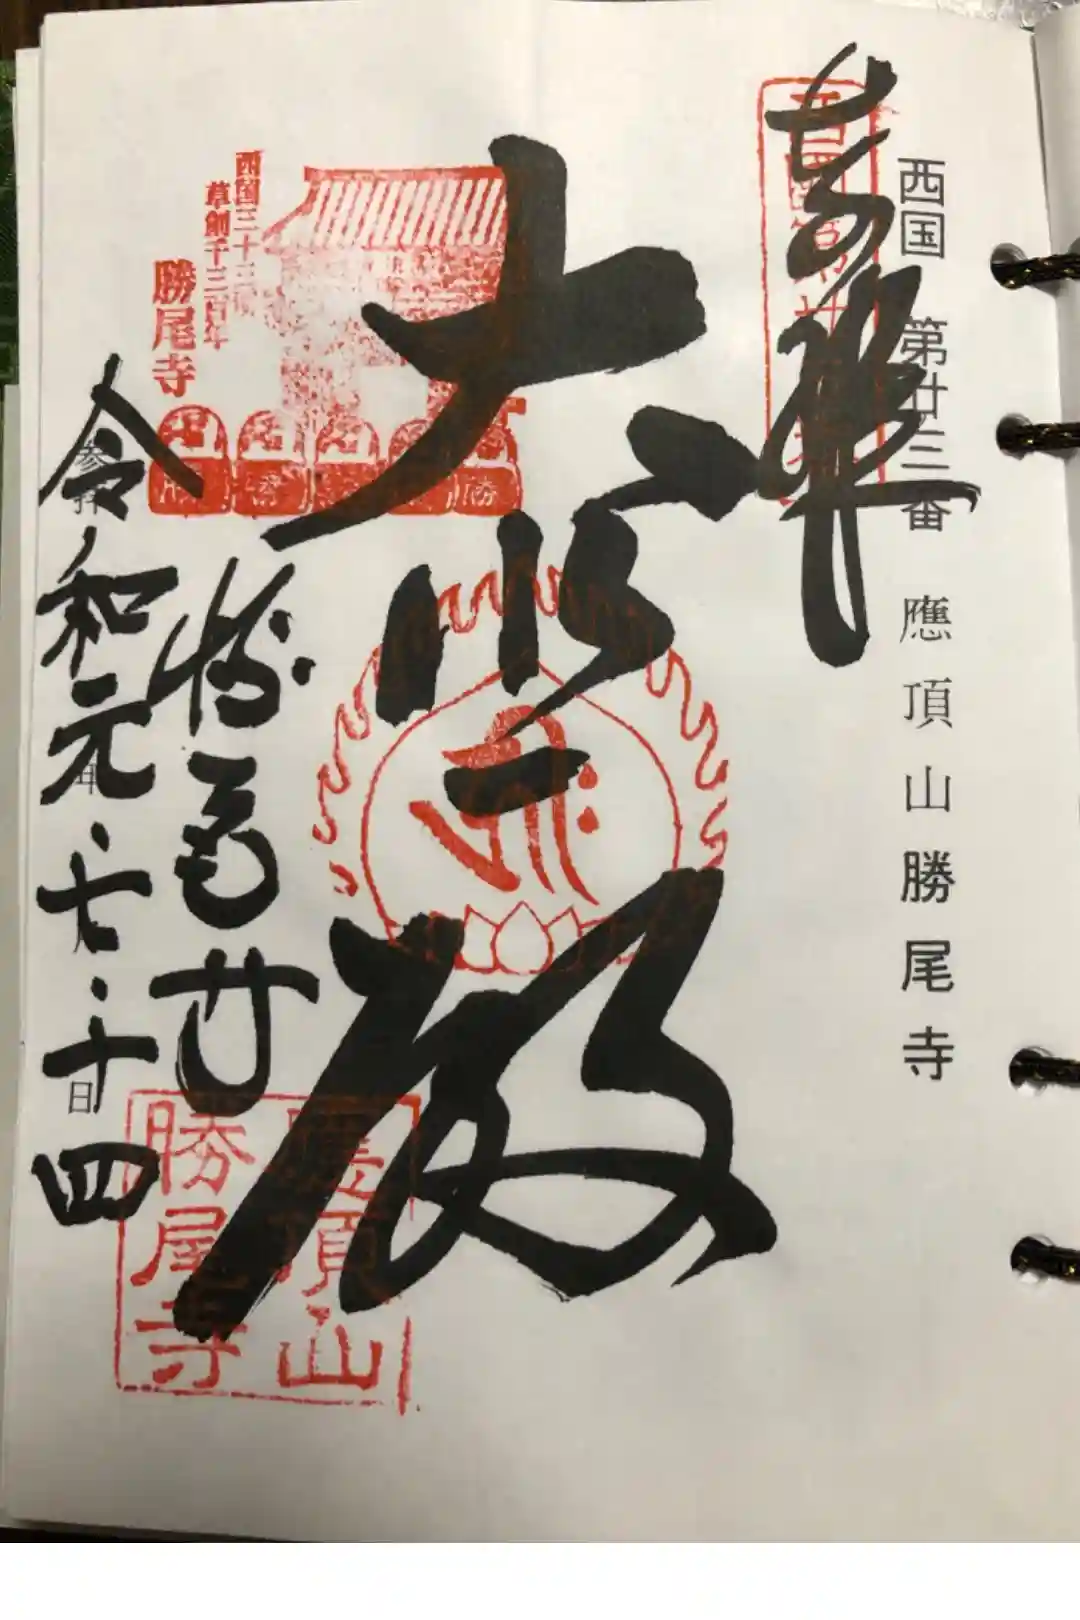 西国 第廿三番 應頂山勝尾寺
奉拝
大悲殿
勝尾寺
令和元・七・十四
西国三十三所
草創千三百年
勝尾寺
應頂山
勝尾寺
日